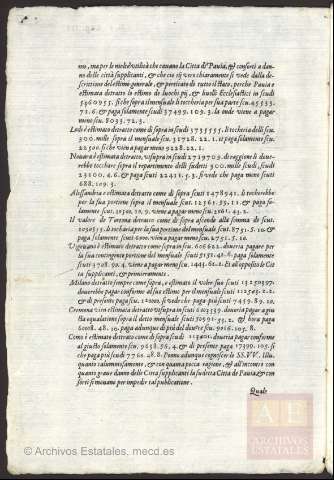 mo, ma per le molestie & utilità che cauano la Città di Pauia, & consorti a dan-
no delle città supplicanti, & che ciò sij vero chiaramente si vede dalla de-
scrittione del estimo generale, & perticato di tutto il stato, perche Pauia è
estimata detratto lo estimo de luochi pij, & huelle Ecclesiastici in scudi
5460955. si che sopra il mensuale li toccheria per sua parte scu. 45533.
71. 6. & paga solamente scudi 37499. 109. 3. la onde viene a pagar
meno scu. 8033. 72. 3.
Lodi è estimato detratto come di sopra in scudi 3735555. li toccheria delli scu.
300. mille sopra il mensuale scu. 31728. 22. 1. il paga solamente scu.
22500. si che viene a pagar meno 9228. 22. 1.
Nouara è estimata detratto, vt supra in scudi 2719703. di raggione li doue-
rebbe toccar sopra il repartimento delli sudetti 300. mille scudi, scudi
23100. 4. 6. & paga scuti 22411. 5. 3. si vede che paga meno scuti
688. 109. 3.
Alessandria è estimata detratto come di sopra scuti 1478941. li toccherebbe
per la sua portione mensuale scu. 12561. 55. 11. & paga so-
lamente scu. 10500. 10. 9. viene a pagar meno scu. 2061. 43. 2.
Il valor de Tortona detratto come di sopra ascende alla somma de scut.
1050515. li toccaria per la sua portione del mensuale scut. 8751. 5. 10 &
paga solamente scuti 6000. paga meno scut. 2751. 5. 10.
Vigeuano è estimato detratto come sopra in scu. 606622. doueria pagare per
la sua contingente portione del mensuale scuti 5151. 41. 6. paga solamente
scuti 3708. 92. 4. viene a pagar meno scu. 1443. 61. 2. Et all'opposito le Cit
tà supplicanti, & primieramente.
Milano detratto sempre come sopra, è estimato il valor suo scuti 13250397.
douerebbe pagar conforme al suo estimo per il mensuale scu. 112543. 2. 2.
& di presente paga scu. 120002. si vede che paga più scuti 7459. 89. 10.
Cremona vien estimata detratto vt supra in scuti 6003359. doueria pagar a giu
sta equalatione sopra il detto mensuale scuti 50991. 55. 2. & hora paga
60008. 48. 10. paga adunque di più del douere scu. 9016. 105. 8.
Como è estimato detratto come di sopra in scudi 1134021. doueria pagar conforme
al giusto solamente scu. 9638. 56. 4. & di presente paga 17399. 105. si
che paga più scudi 7760. 28. 8. Ponno adunque cognoscer le SS. VV. Illu.
quanto calunniosamente, & con quanta poca ragione, & all'incontro con
quanto graue danno delle Città supplicanti la sudetta Città de Pauia, & con
sorti si mouano per impedir tal publicatione.
Quale
ARCHIVOS
ESTATALES
© Archivos Estatales, mecd.es